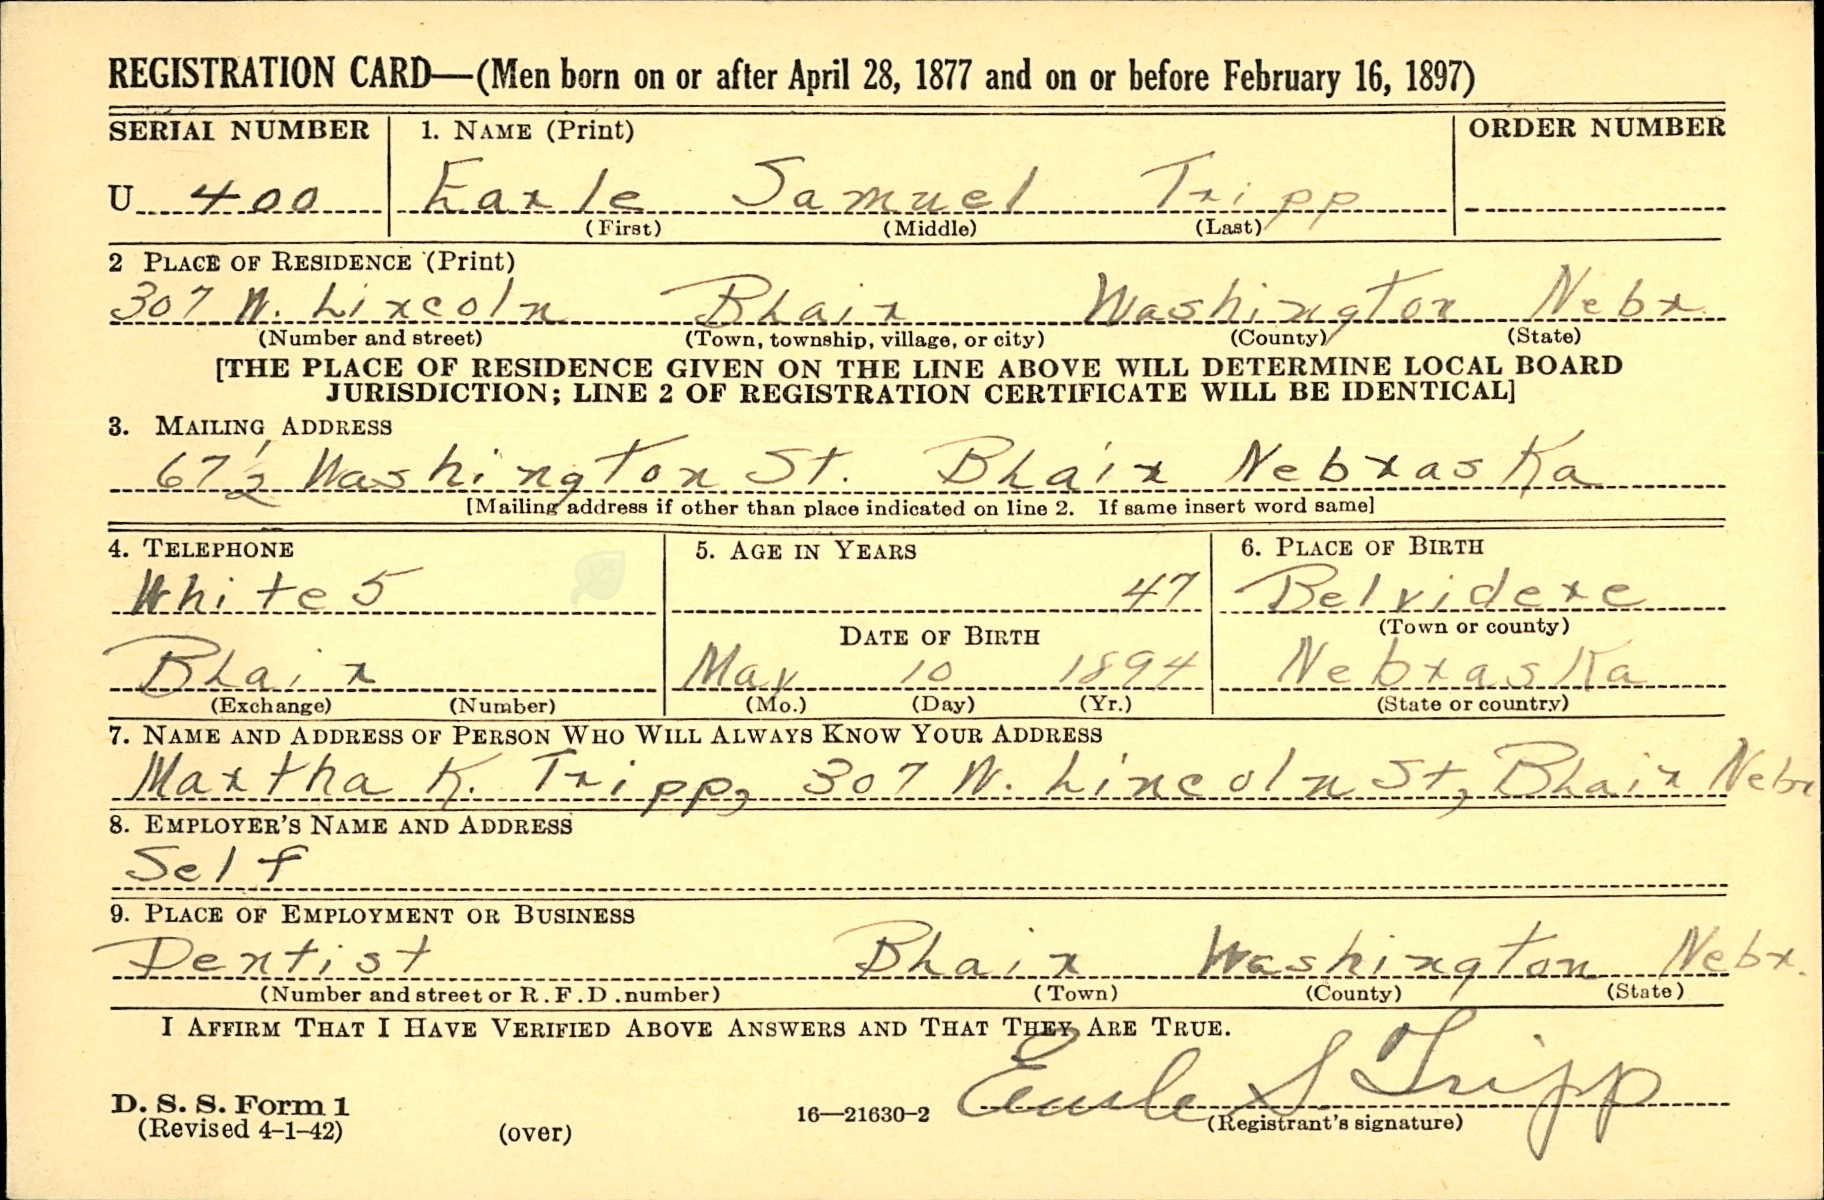 REGISTRATION CARD—(Men born on or after April 28, 1877 and on or before February 16, 1897)
SERIAL NUMBER 1. NAME (Print) ORDER NUMBER
U 400 Earle Samuel Tripp
(First) (Middle) (Last)
2 PLACE OF RESIDENCE (Print)
307 W. Lincoln Blair Washington Nebr
(Number and street) (Town, township, village, or city) (County) (State)
[THE PLACE OF RESIDENCE GIVEN ON THE LINE ABOVE WILL DETERMINE LOCAL BOARD
JURISDICTION; LINE 2 OF REGISTRATION CERTIFICATE WILL BE IDENTICAL]
3. MAILING ADDRESS
67½ Washington St. Blair Nebraska
[Mailing address if other than place indicated on line 2. If same insert word same]
4. TELEPHONE 5. AGE IN YEARS 6. PLACE OF BIRTH
White 5 47 Belvidere
DATE OF BIRTH (Town or county)
Blair May 10 1894 Nebraska
(Exchange) (Number) (Mo.) (Day) (Yr.) (State or country)
7. NAME AND ADDRESS OF PERSON WHO WILL ALWAYS KNOW YOUR ADDRESS
Martha K. Tripp, 307 W. Lincoln St, Blair Nebr
8. EMPLOYER'S NAME AND ADDRESS
Self
9. PLACE OF EMPLOYMENT OR BUSINESS
Dentist Blair Washington Nebr.
(Number and street or R.F.D. number) (Town) (County) (State)
I AFFIRM THAT I HAVE VERIFIED ABOVE ANSWERS AND THAT THEY ARE TRUE.
Earle S. Tripp
D. S. S. Form 1 16—21630-2 (Registrant's signature)
(Revised 4-1-42) (over)